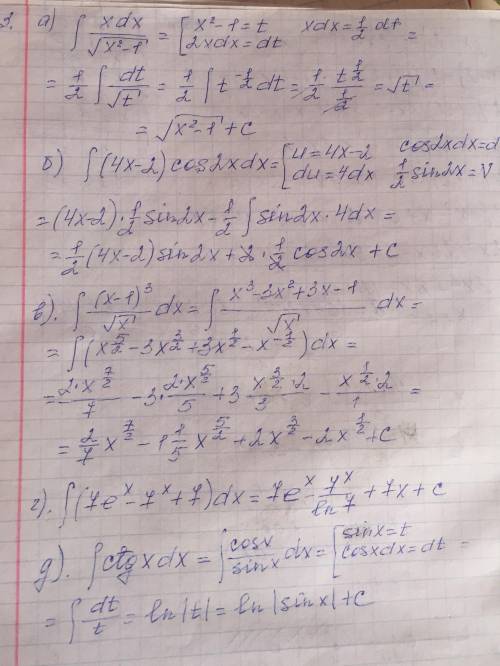 3. а) ∫ xdx/√(x²-1) = [x²-1=t xdx=½ dt
2xdx=dt =
= 1/2 ∫ dt/√t = 1/2 ∫ t^(-1/2) dt = 1/2 · t^(1/2)/(1/2) = √t =
= √(x²-1) + C
б) ∫ (4x-2) cos2xdx = [u=4x-2 cos2xdx=d
du=4dx ½ sin2x=V
= (4x-2)·½ sin2x - ½ ∫ sin2x·4dx =
= ½ (4x-2) sin2x + 2·½ cos2x + C
в). ∫ (x-1)³/√x dx = ∫ (x³-3x²+3x-1)/√x dx =
= ∫ (x^(5/2) - 3x^(3/2) + 3x^(1/2) - x^(-1/2)) dx =
= 2·x^(7/2)/7 - 3·2·x^(5/2)/5 + 3 x^(3/2)·2/3 - x^(1/2)·2/1 =
= 2/7 x^(7/2) - 1 1/5 x^(5/2) + 2x^(3/2) - 2x^(1/2) + C
г). ∫ (7e^x - 7^x + 7) dx = 7e^x - 7^x/ln7 + 7x + C
д). ∫ ctgxdx = ∫ cosx/sinx dx = [sinx=t
cosxdx=dt =
= ∫ dt/t = ln|t| = ln|sinx| + C